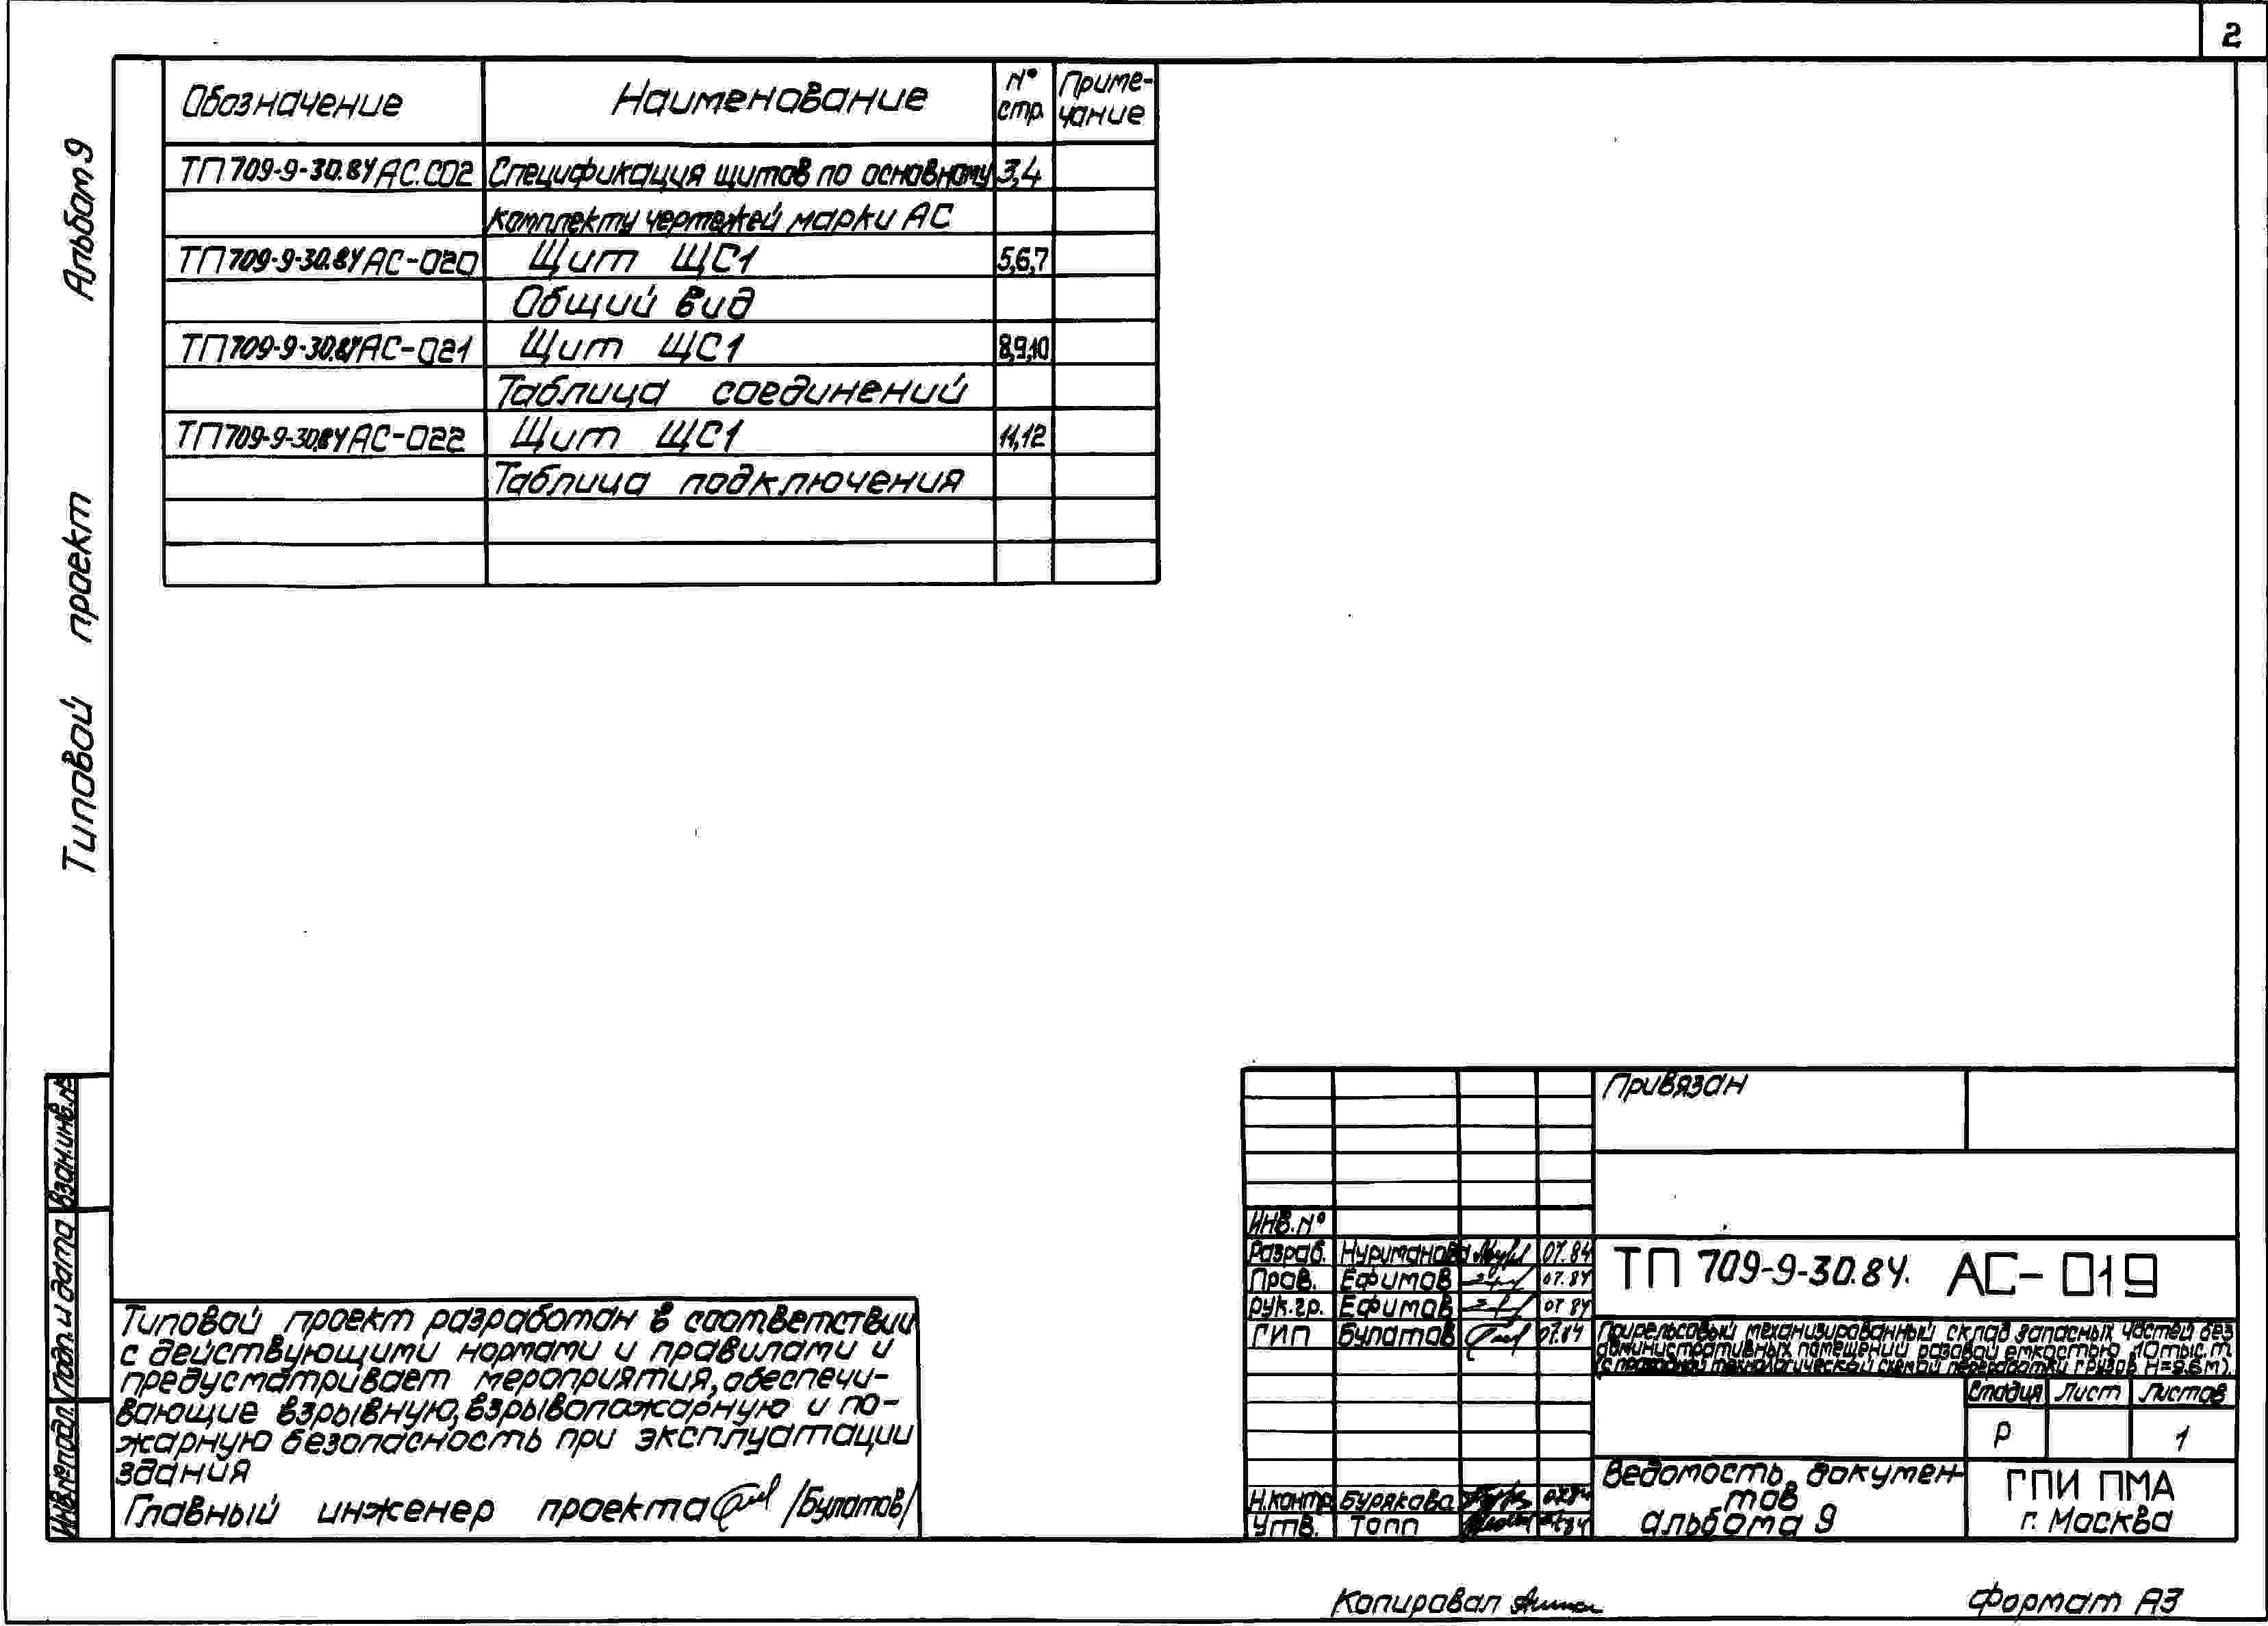 2
Альбом 9
Типовой проект
Обозначение Наименование № стр. Приме-
чание
ТП 709-9-30.84 АС.СО2 Спецификация щитов по основному 3,4
комплекту чертежей марки АС
ТП 709-9-30.84 АС-020 Щит ЩС1 5,6,7
Общий вид
ТП 709-9-30.84 АС-021 Щит ЩС1 8,9,10
Таблица соединений
ТП 709-9-30.84 АС-022 Щит ЩС1 11,12
Таблица подключения
Взам.инв.№
Подп. и дата
Инв.№ подл.
Типовой проект разработан в соответствии
с действующими нормами и правилами и
предусматривает мероприятия, обеспечи-
вающие взрывную, взрывопожарную и по-
жарную безопасность при эксплуатации
здания
Главный инженер проекта /Булатов/
Привязан
Инв.№
Разраб. Нуриманова 07.84
Пров. Ефимов 07.84
Рук.гр. Ефимов 07 84
ГИП Булатов 07.84
Н.контр. Бурякова 07.84
Утв. Топп 07.84
ТП 709-9-30.84. АС-019
Прирельсовый механизированный склад запасных частей без
административных помещений разовой емкостью 10 тыс.т.
(с проходной технологической схемой переработки грузов Н=9,6м).
Стадия Лист Листов
Р 1
Ведомость докумен-
тов
альбома 9
ГПИ ПМА
г. Москва
Копировал
Формат А3